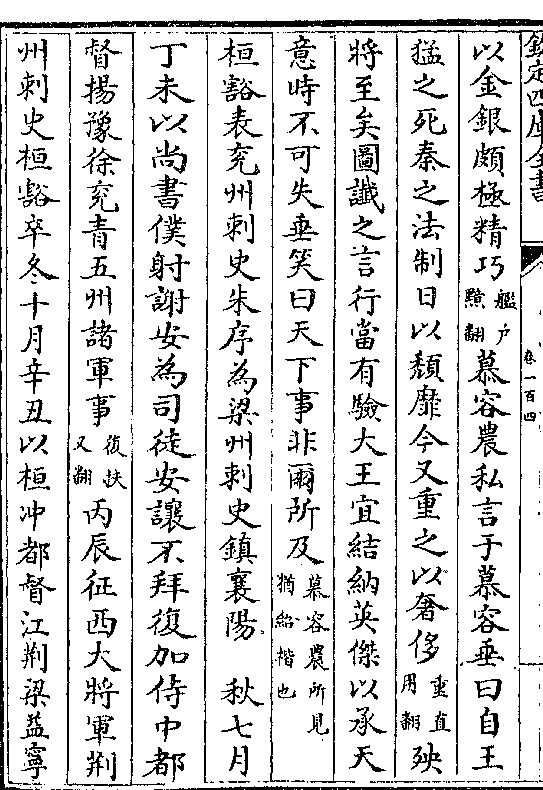 欽定四庫全書
卷一百四
以金銀頗極精巧艦户黤翻慕容農私言于慕容垂曰自王
猛之死秦之法制日以頽靡今又重之以奢侈重直用翻殃
將至矣圖讖之言行當有驗大王宜結納英傑以承天
意時不可失垂笑曰天下事非爾所及慕容農所見猶紹楷也
桓豁表兖州刺史朱序為梁州刺史鎮襄陽　秋七月
丁未以尚書僕射謝安為司徒安讓不拜復加侍中都
督揚豫徐兖青五州諸軍事復扶又翻丙辰征西大將軍荆
州刺史桓豁卒冬十月辛丑以桓冲都督江荆梁益寧